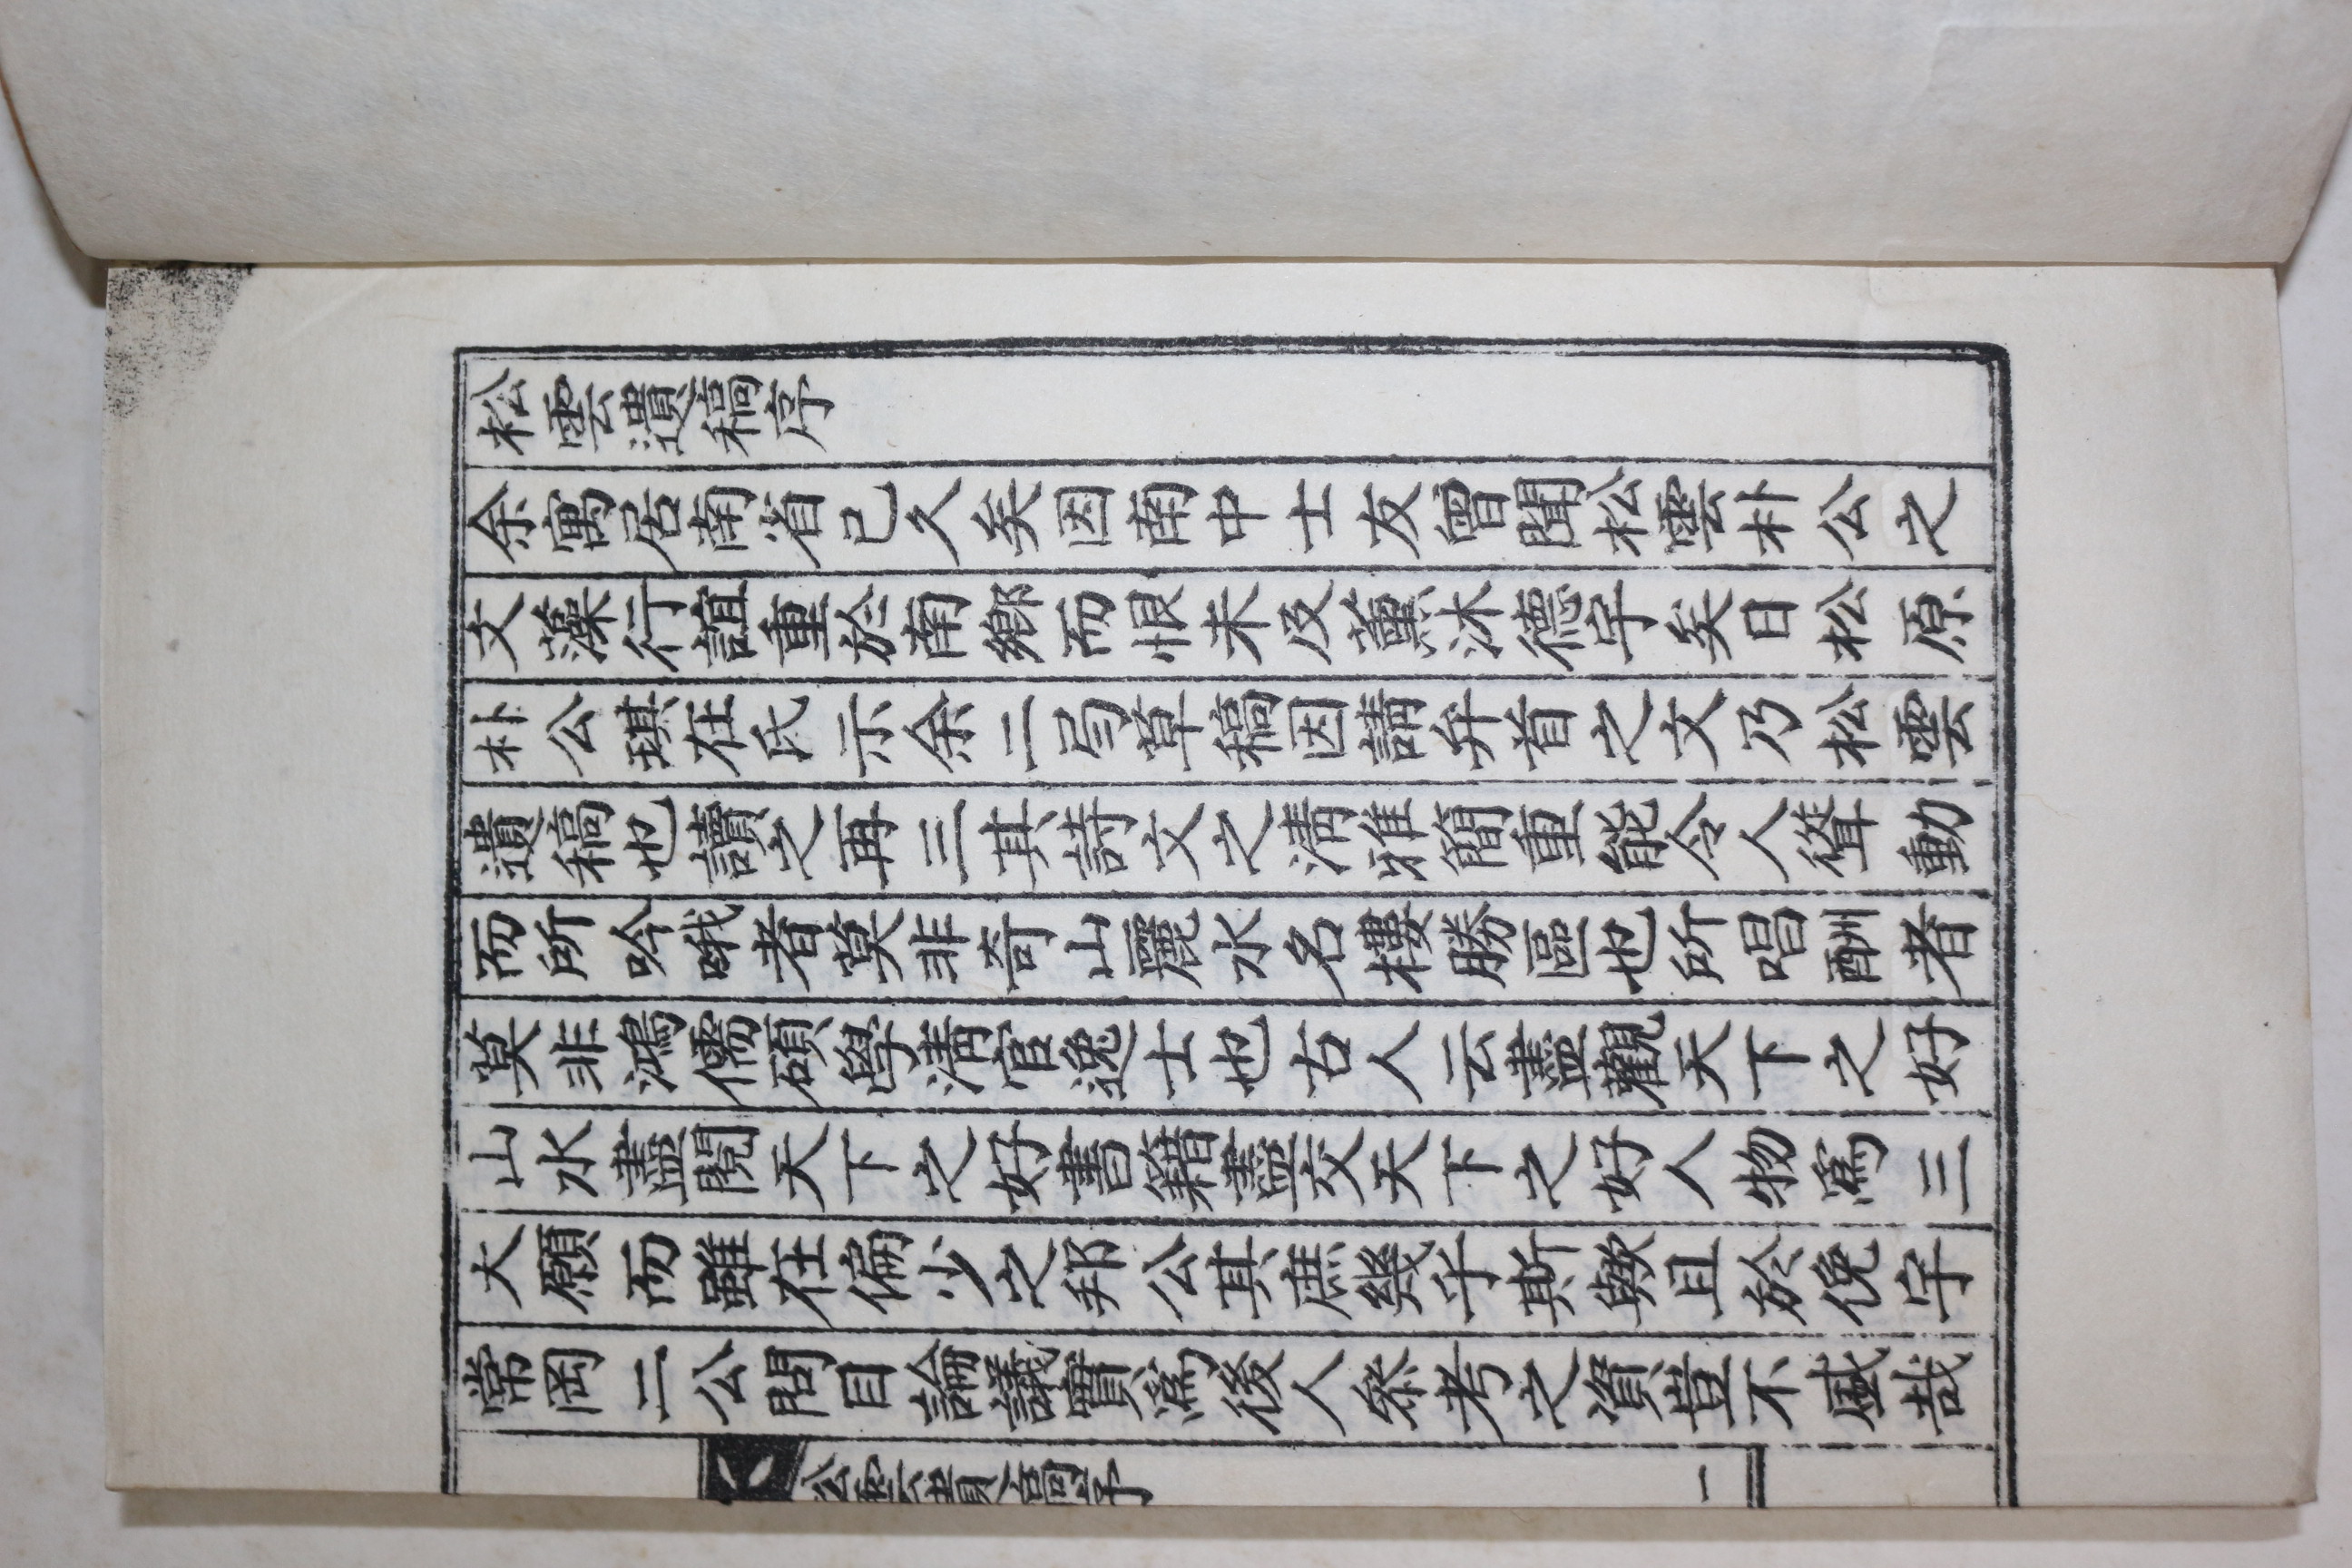 松雲遺稿序
余寓居南省已久矣因南中士友曾聞松雲朴公之
文藻行誼重於南鄉而恨未及薰沐德宇矣日松原
朴公琪在氏示余二弓草稿因請弁首之文乃松雲
遺稿也讀之再三其詩文之淸雅簡重能令人聳動
而所吟哦者莫非奇山麗水名樓勝區也所唱酬者
莫非鴻儒碩學淸官逸士也古人云盡觀天下之好
山水盡閱天下之好書籍盡交天下之好人物爲三
大願而雖在偏少之邦公其庶幾乎斯歟且於俛宇
常岡二公問目論議實爲後人叅考之資豈不盛哉
松雲遺稿序
一